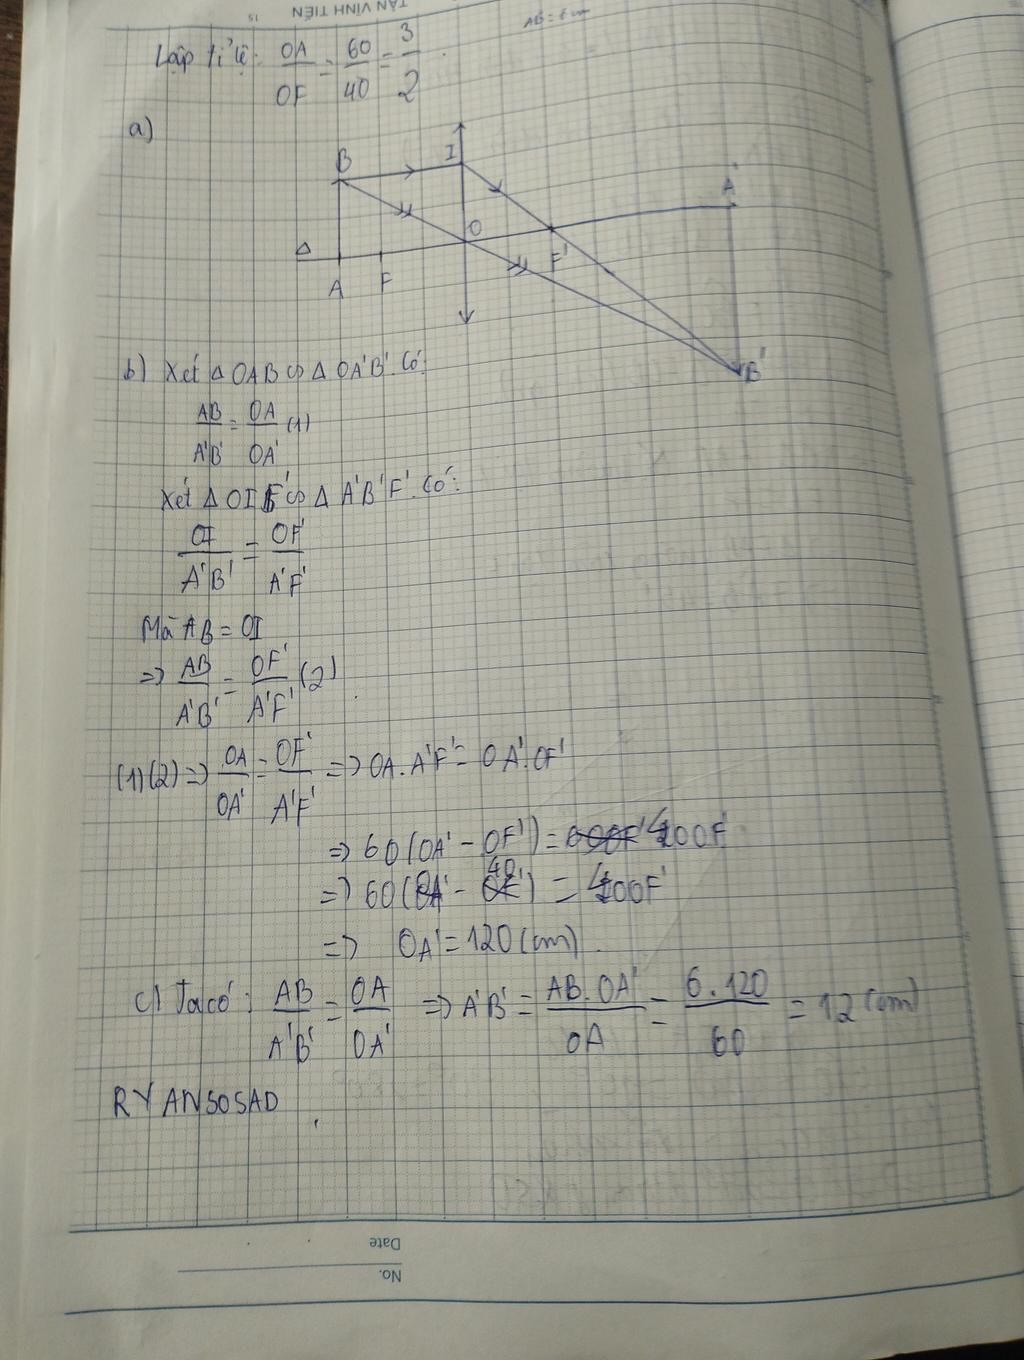 TÂN VĨNH TIẾN
15
AB = 6 cm
Lập tỉ lệ: OA/OF = 60/40 = 3/2
a)
B I A'
Δ O
A F F'
B'
b) Xét Δ OAB ∽ Δ OA'B'. Có:
AB/A'B' = OA/OA' (1)
Xét Δ OIF' ∽ Δ A'B'F'. Có:
OI/A'B' = OF'/A'F'
Mà AB = OI
=> AB/A'B' = OF'/A'F' (2)
(1)(2) => OA/OA' = OF'/A'F' => OA.A'F' = OA'.OF'
=> 60(OA' - OF') = 40OF'
=> 60(OA' - 40) = 40OF'
=> OA' = 120 (cm).
c) Ta có: AB/A'B' = OA/OA' => A'B' = AB.OA'/OA = 6.120/60 = 12 (cm)
RYANSOSAD
Date
No.